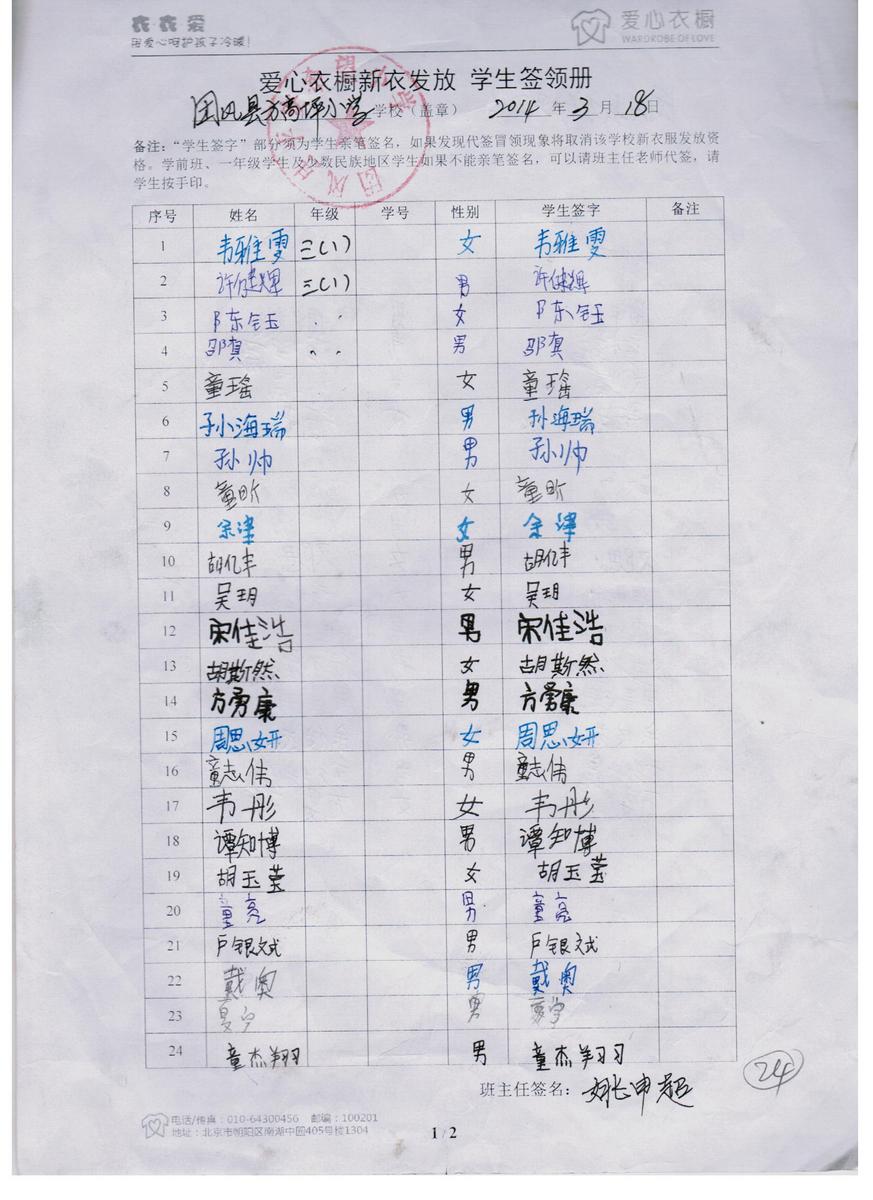 衣衣爱
用爱心呵护孩子冷暖!
爱心衣橱
WARDROBE OF LOVE
爱心衣橱新衣发放 学生签领册
团风县方高坪小学 学校（盖章） 2014 年 3 月 18 日
备注："学生签字"部分须为学生亲笔签名，如果发现代签冒领现象将取消该学校新衣服发放资
格。学前班、一年级学生及少数民族地区学生如果不能亲笔签名，可以请班主任老师代签，请
学生按手印。
序号 姓名 年级 学号 性别 学生签字 备注
1 韦雅雯 三(1) 女 韦雅雯
2 许健辉 三(1) 男 许健辉
3 陈钰 〃 女 陈钰
4 邵真 〃 男 邵真
5 童瑶 女 童瑶
6 孙海瑞 男 孙海瑞
7 孙帅 男 孙帅
8 童昕 女 童昕
9 余津 女 余津
10 胡亿丰 男 胡亿丰
11 吴玥 女 吴玥
12 宋佳浩 男 宋佳浩
13 胡斯然 女 胡斯然
14 方勇康 男 方勇康
15 周思妍 女 周思妍
16 童志伟 男 童志伟
17 韦彤 女 韦彤
18 谭知博 男 谭知博
19 胡玉莹 女 胡玉莹
20 童亮 男 童亮
21 卢银斌 男 卢银斌
22 戴奥 男 戴奥
23 夏宇 男 夏宇
24 童杰翔 男 童杰翔
班主任签名： 姚申超
24
电话/传真：010-64300456 邮编：100201
地址：北京市朝阳区南湖中园405号楼1304
1 / 2